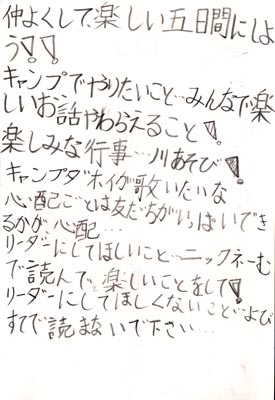 仲よくして楽しい五日間にしよ
う!!
キャンプでやりたいこと…みんなで楽
しいお話やわらえること!
楽しみな行事…川あそび!
キャンプダホイが歌いたいな
心配ごとは友だちがいっぱいでき
るかが、心配…
リーダーにしてほしいこと…ニックネーむ
で読んで、楽しいことをして!
リーダーにしてほしくないこと…よび
すてで読まないで下さい…